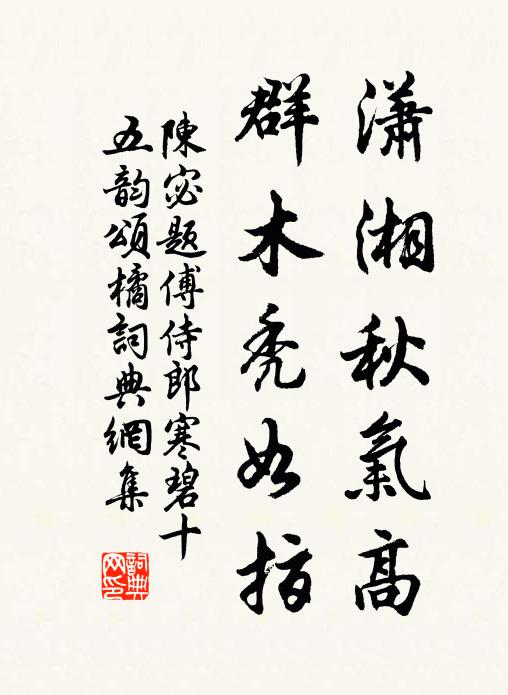 瀟湘秋氣高
群木禿如指
陳宓題傅侍郎寒碧十
五韵頌橘詞典網集
詞典
网印